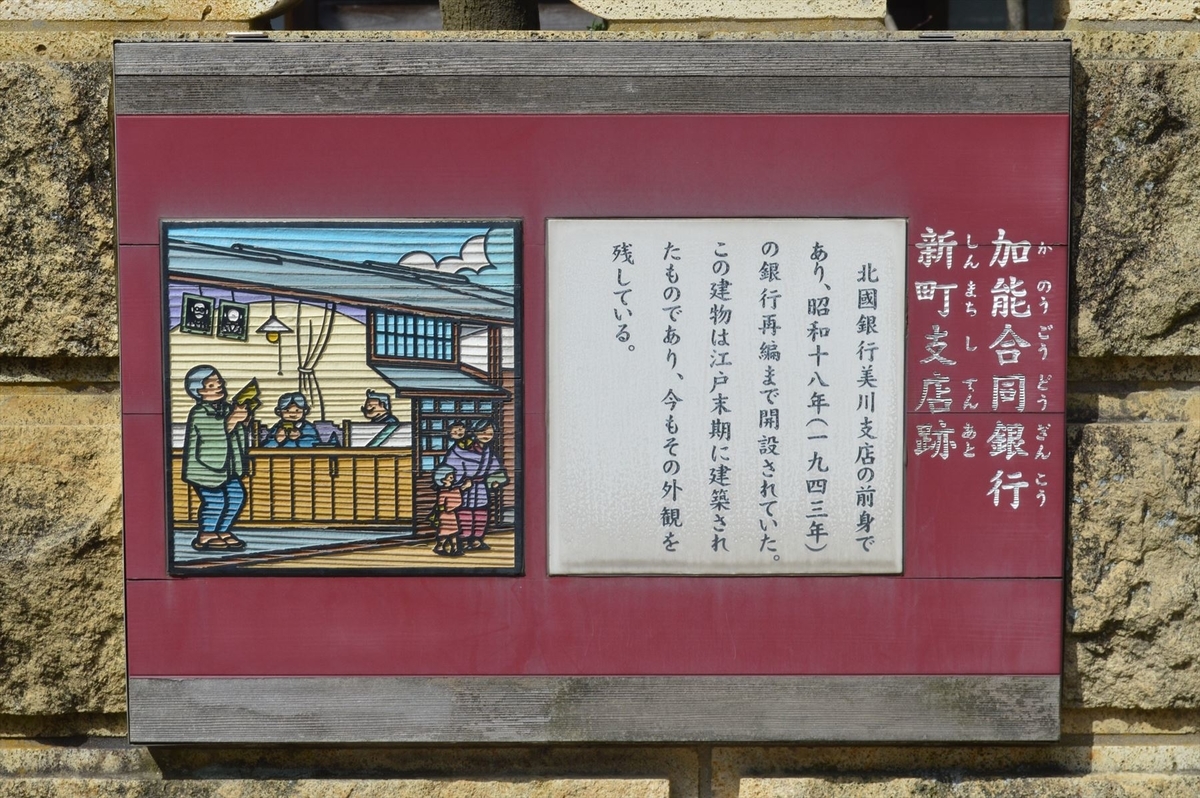 加能合同銀行
かのうごうどうぎんこう
新町支店跡
しんまちしてんあと
北國銀行美川支店の前身で
あり、昭和十八年(一九四三年)
の銀行再編まで開設されていた。
この建物は江戸末期に建築され
たものであり、今もその外観を
残している。